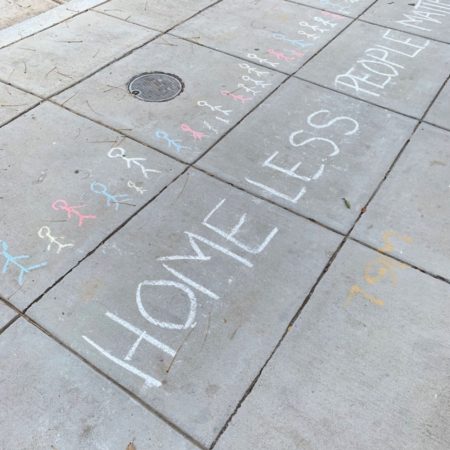 HOME LESS PEOPLE MAT